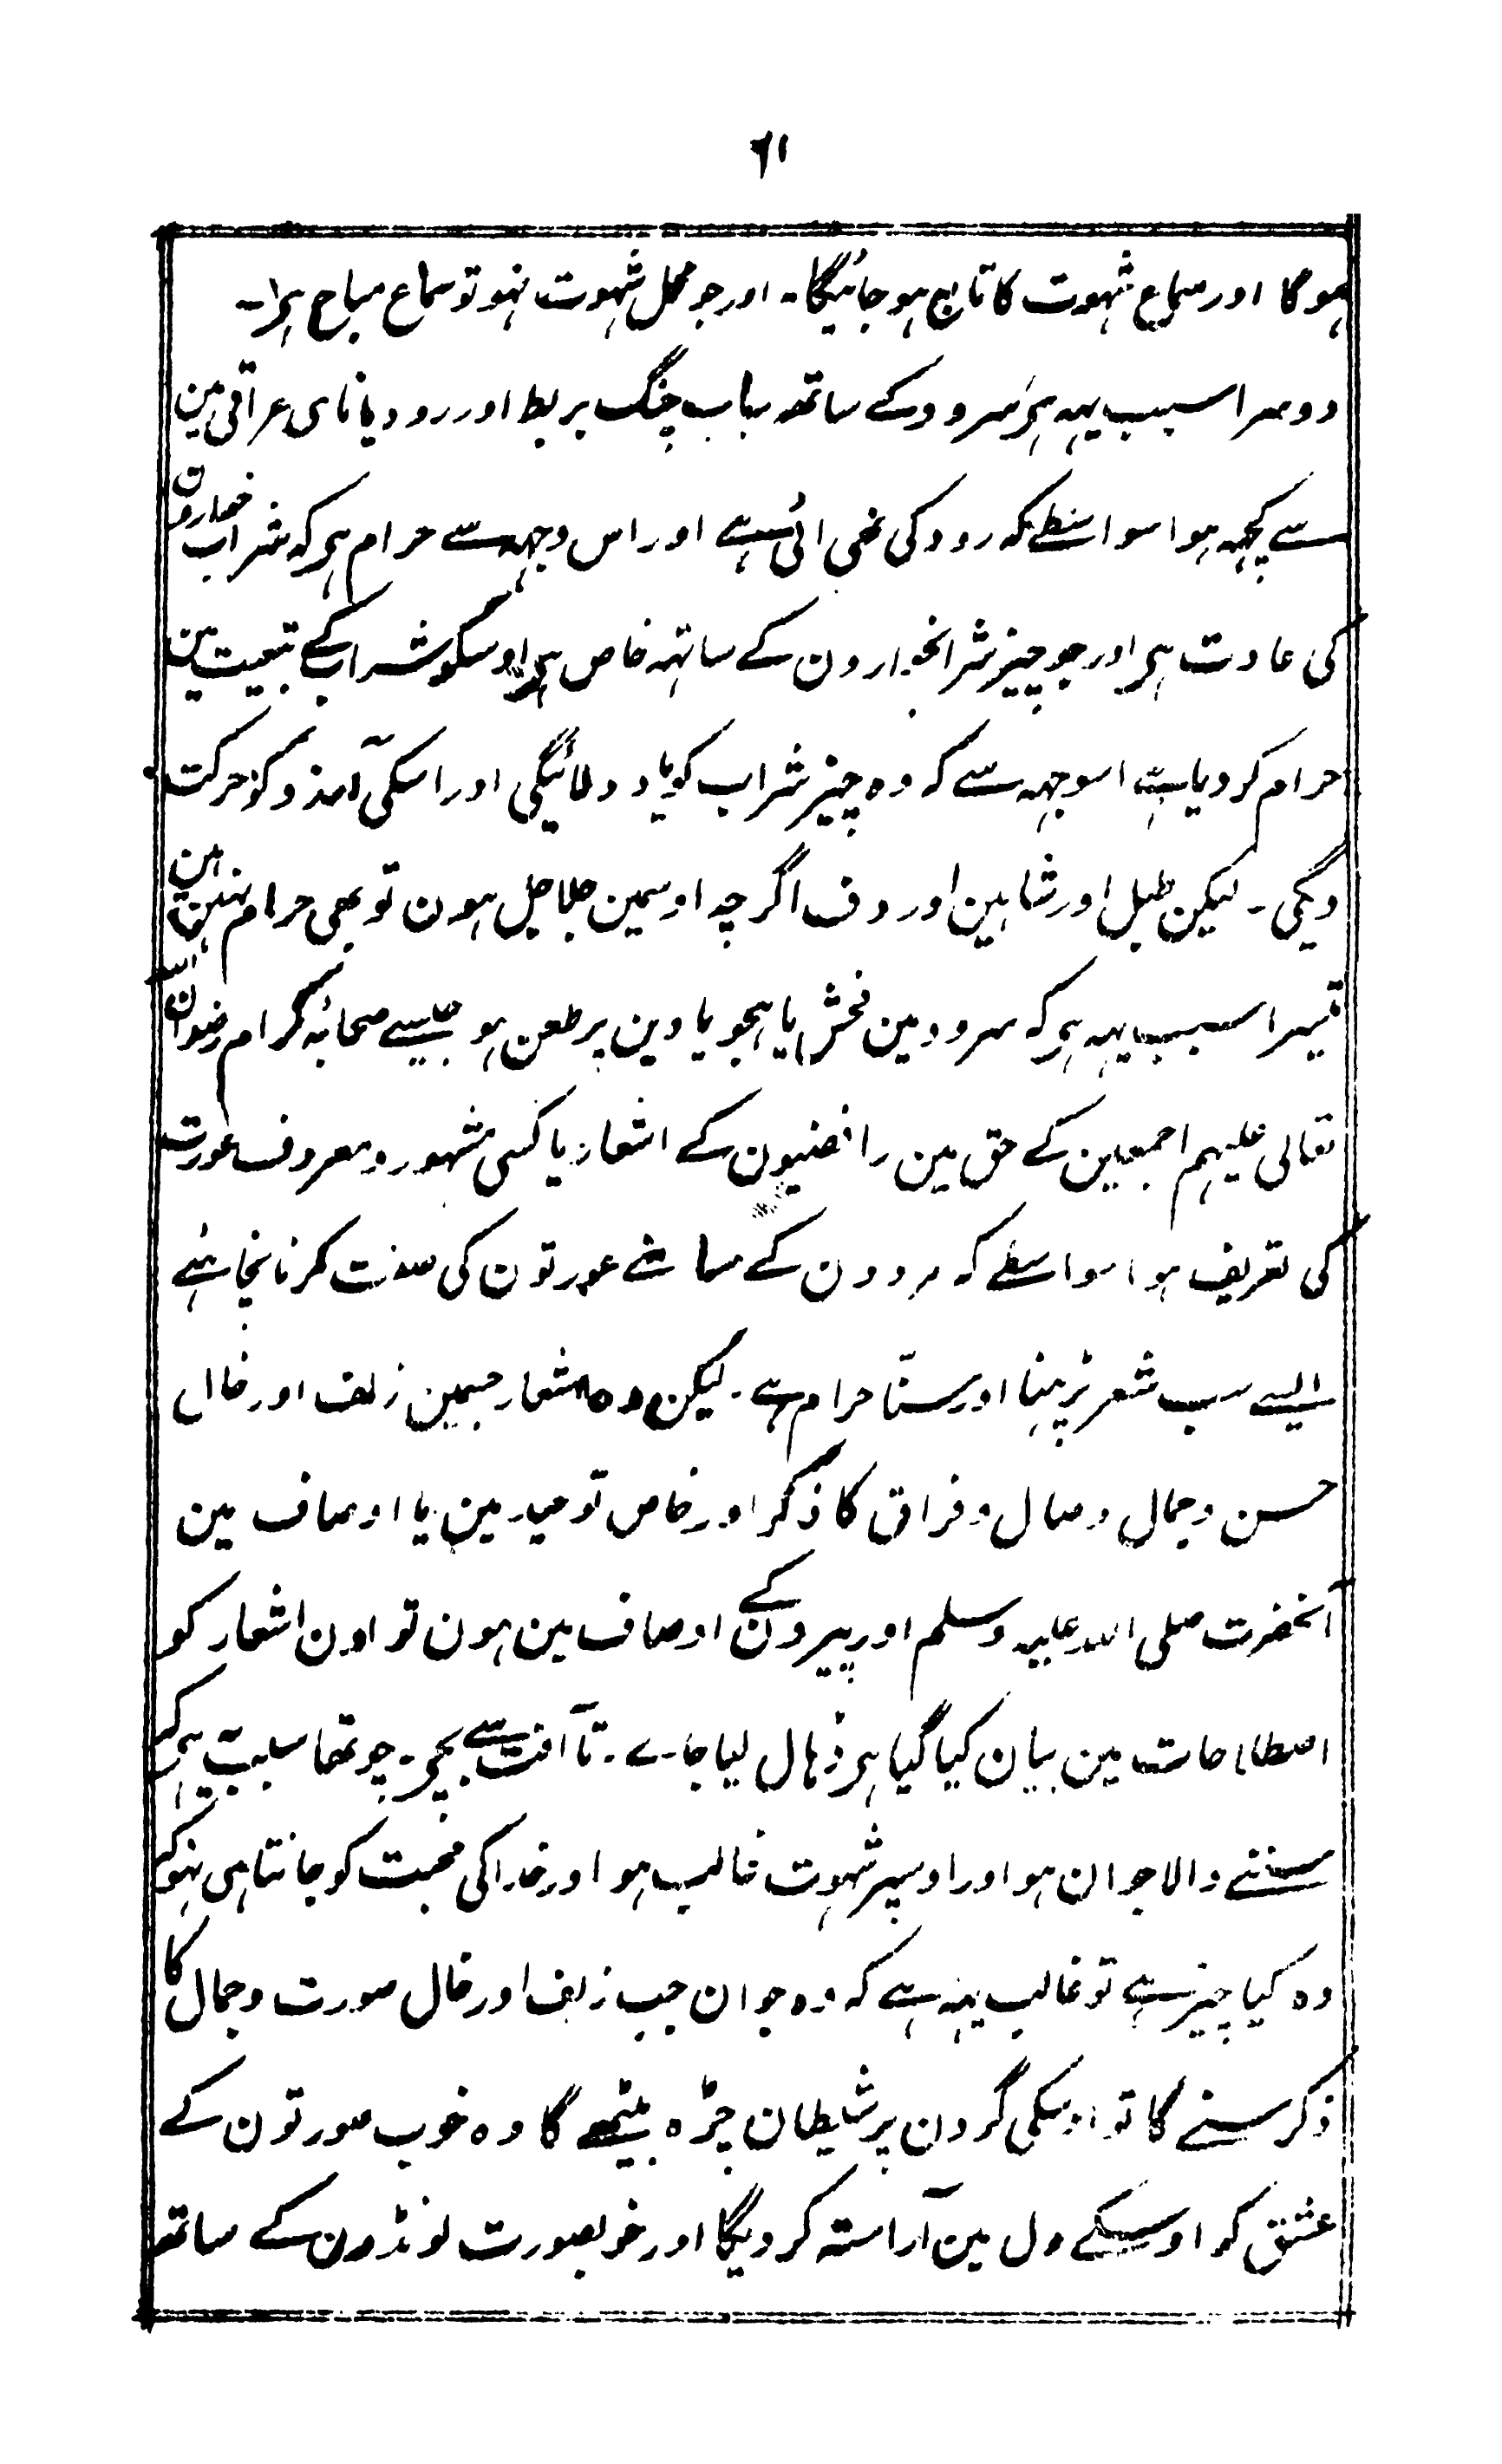 ۶۱
ہوگا اور سماع شہوت کا تابع ہو جائیگا۔ اور جو محل شہوت نہو تو سماع مباح ہی۔
دوسرا سبب یہہ ہی سرود کے ساتھہ رباب چنگ بربط اور رود یا نای عراقی مین
سے کچہہ ہو اسواسطے کہ رود کی نہی آئی ہے اور اس وجہہ سے حرام ہی کہ شراب خوارون
کی عادت ہی اور جو چیز شرابخوارون کے ساتہہ خاص ہی اوسکو شراب کے تبعیت مین
حرام کر دیا ہے اسوجہہ سے کہ وہ چیز شراب کو یاد دلائیگی اور اسکی آرزو کو حرکت
دیگی۔ لیکن طبل اور شاہین اور دف اگرچہ اوسمین جلاجل ہون تو بھی حرام نہین ہین
تیسرا سبب یہہ ہی کہ سرود مین فحش یا ہجو یا دین پر طعن ہو جیسے صحابۂ کرام رضوان اللہ
تعالی علیہم اجمعین کے حق مین رافضیون کے اشعار یا کسی مشہور و معروف عورت
کی تعریف ہو اسواسطے کہ مردون کے سامنے عورتون کی صفت کرنا نچاہئے
ایسے سب شعر پڑہنا اور سننا حرام ہے۔ لیکن وہ اشعار جسمین زلف اور خال
حسن و جمال وصال و فراق کا ذکر اور خاص توحید مین یا اوصاف مین
آنحضرت صلی اللہ علیہ وسلم اور پیرون کے اوصاف مین ہون تو اون اشعار کو
اصطلاحات مین بیان کیا گیا ہی ڈہال لیا جاے۔ تا آفت سے بچے۔ چوتھا سبب یہہ ہی کہ
سننے والا جوان ہو اور اوسپر شہوت غالب ہو اور خدا کی محبت کو جانتا ہی نہو کہ
وہ کیا چیز ہے تو غالب یہہ ہے کہ وہ جوان جب زلف اور خال صورت و جمال کا
ذکر سنے گا تو اوسکی گردن پر شیطان چڑہ بیٹھے گا وہ خوب صورتون کے
عشق کو اوسکے دل مین آراستہ کر دیگا اور خوبصورت لونڈون کے ساتھہ